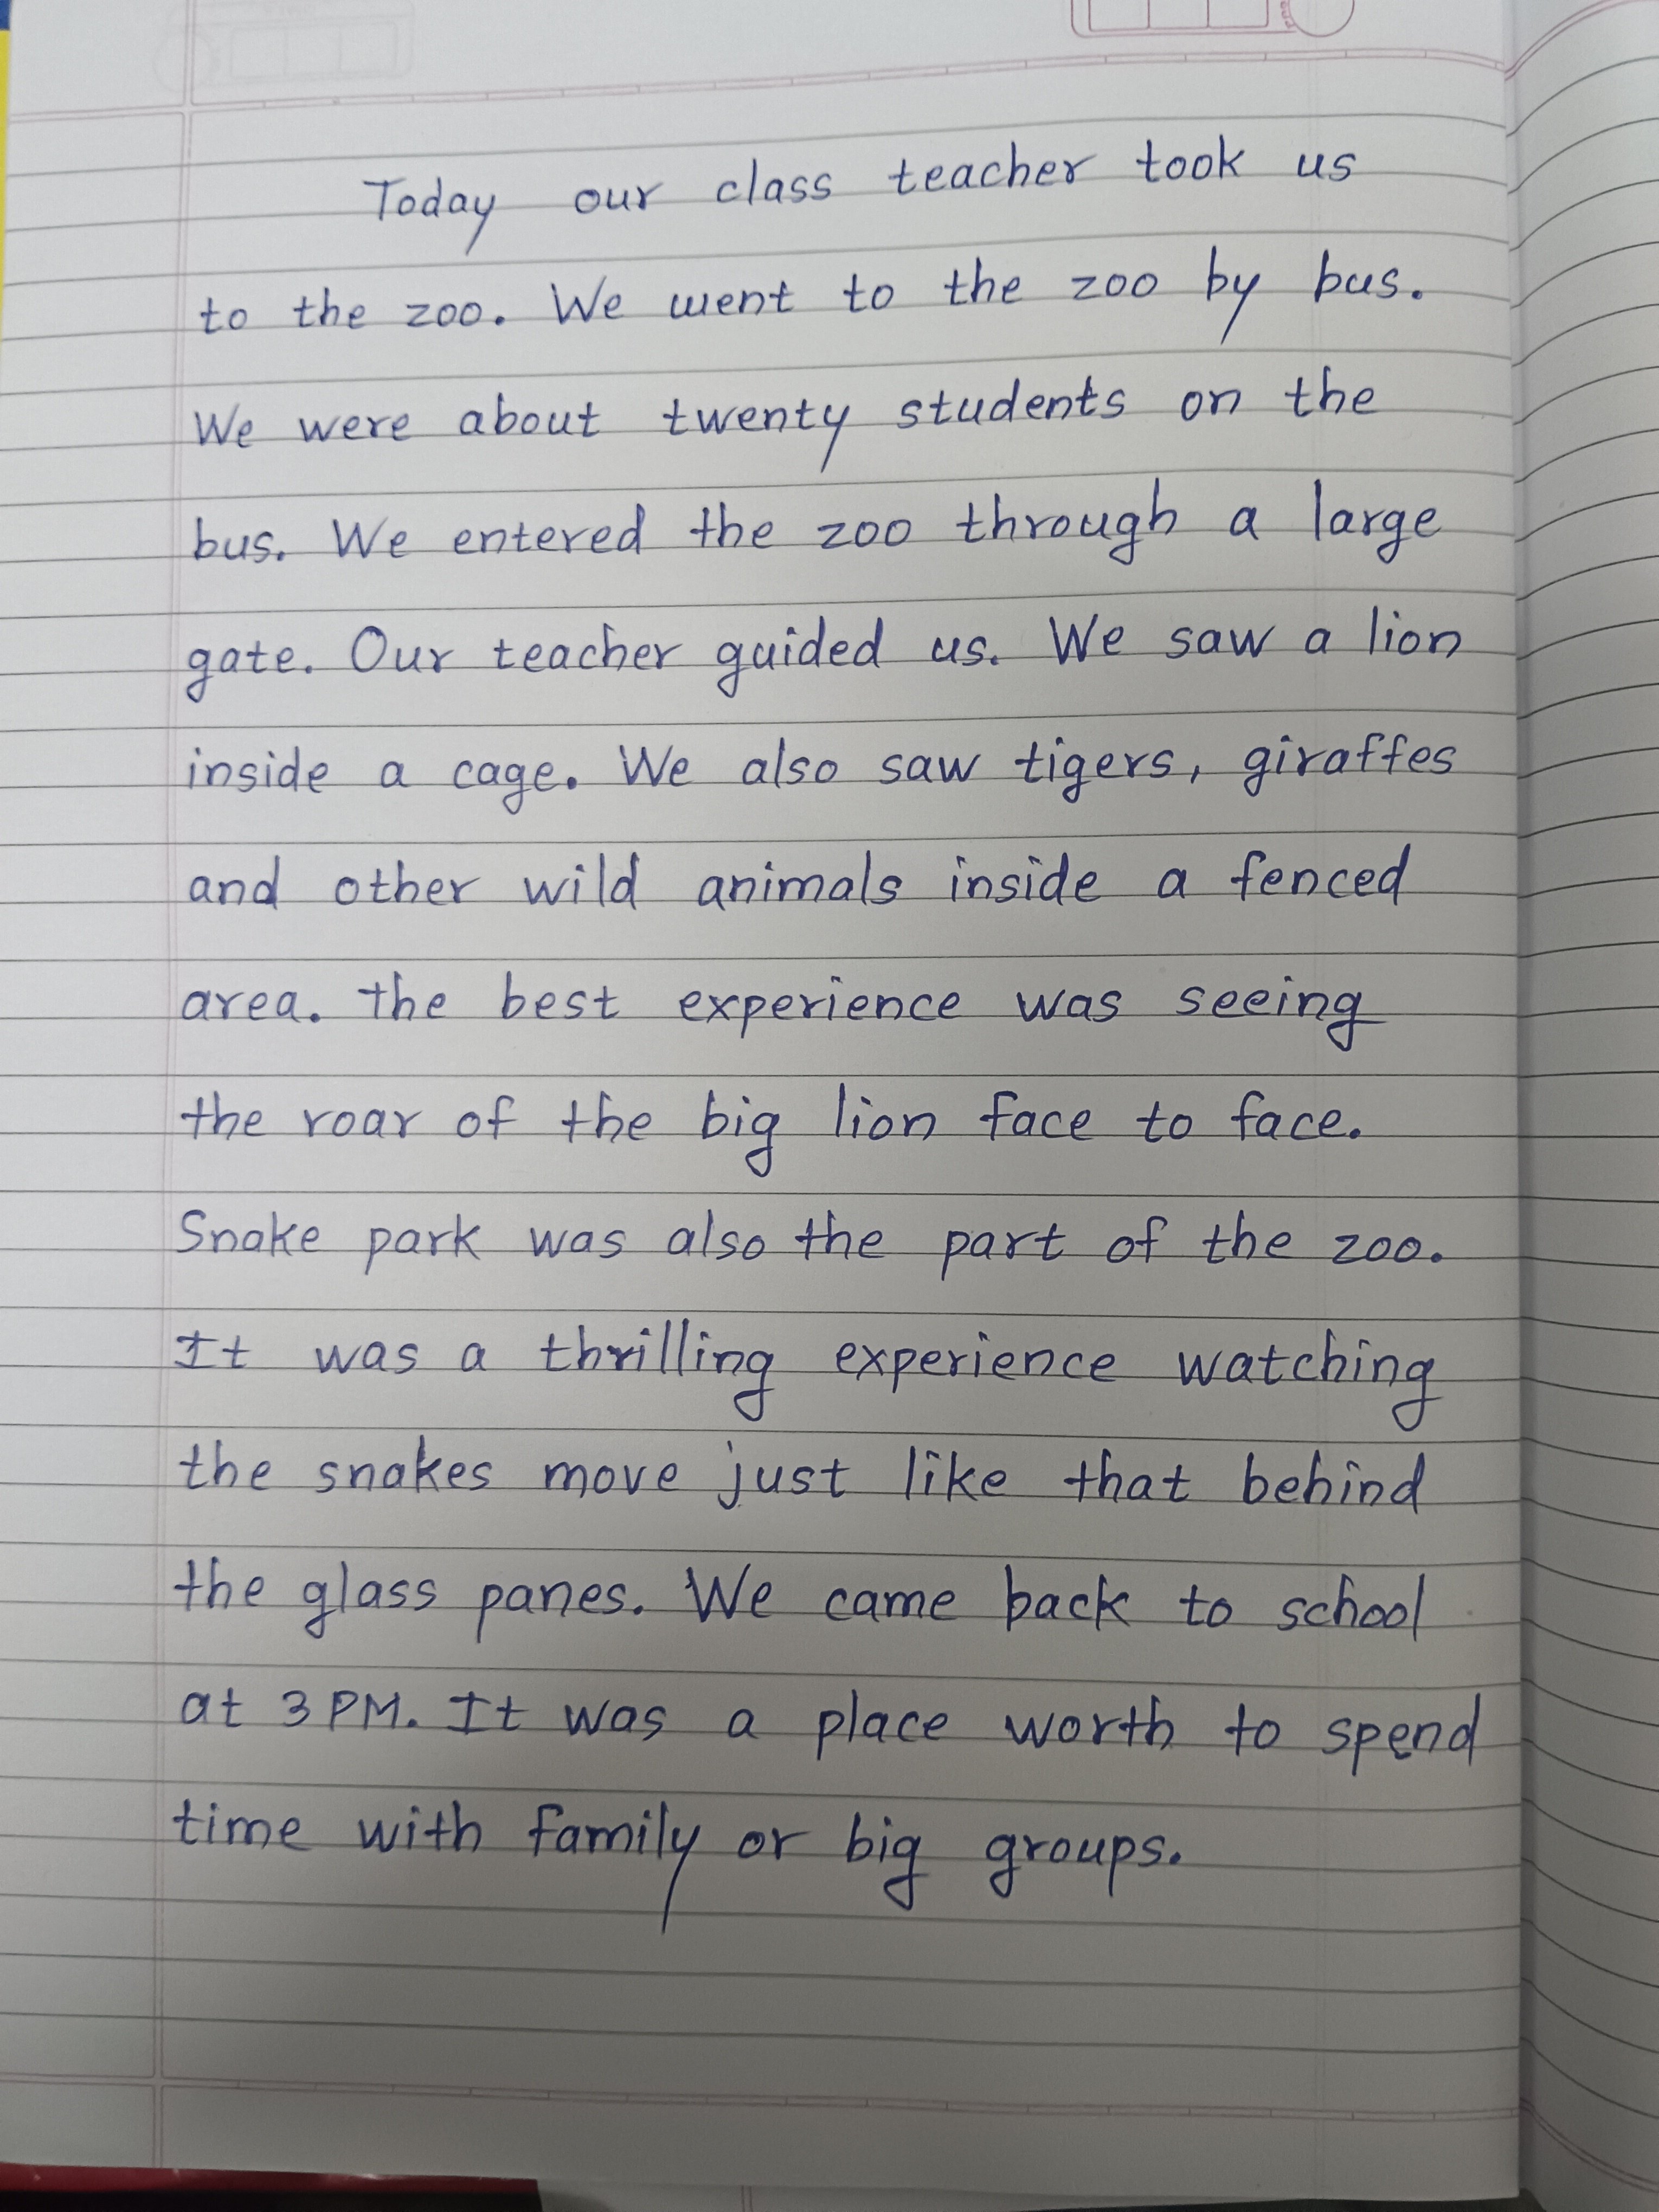 Today our class teacher took us
to the zoo. We went to the zoo by bus.
We were about twenty students on the
bus. We entered the zoo through a large
gate. Our teacher guided us. We saw a lion
inside a cage. We also saw tigers, giraffes
and other wild animals inside a fenced
area. the best experience was seeing
the roar of the big lion face to face.
Snake park was also the part of the zoo.
It was a thrilling experience watching
the snakes move just like that behind
the glass panes. We came back to school
at 3 PM. It was a place worth to spend
time with family or big groups.